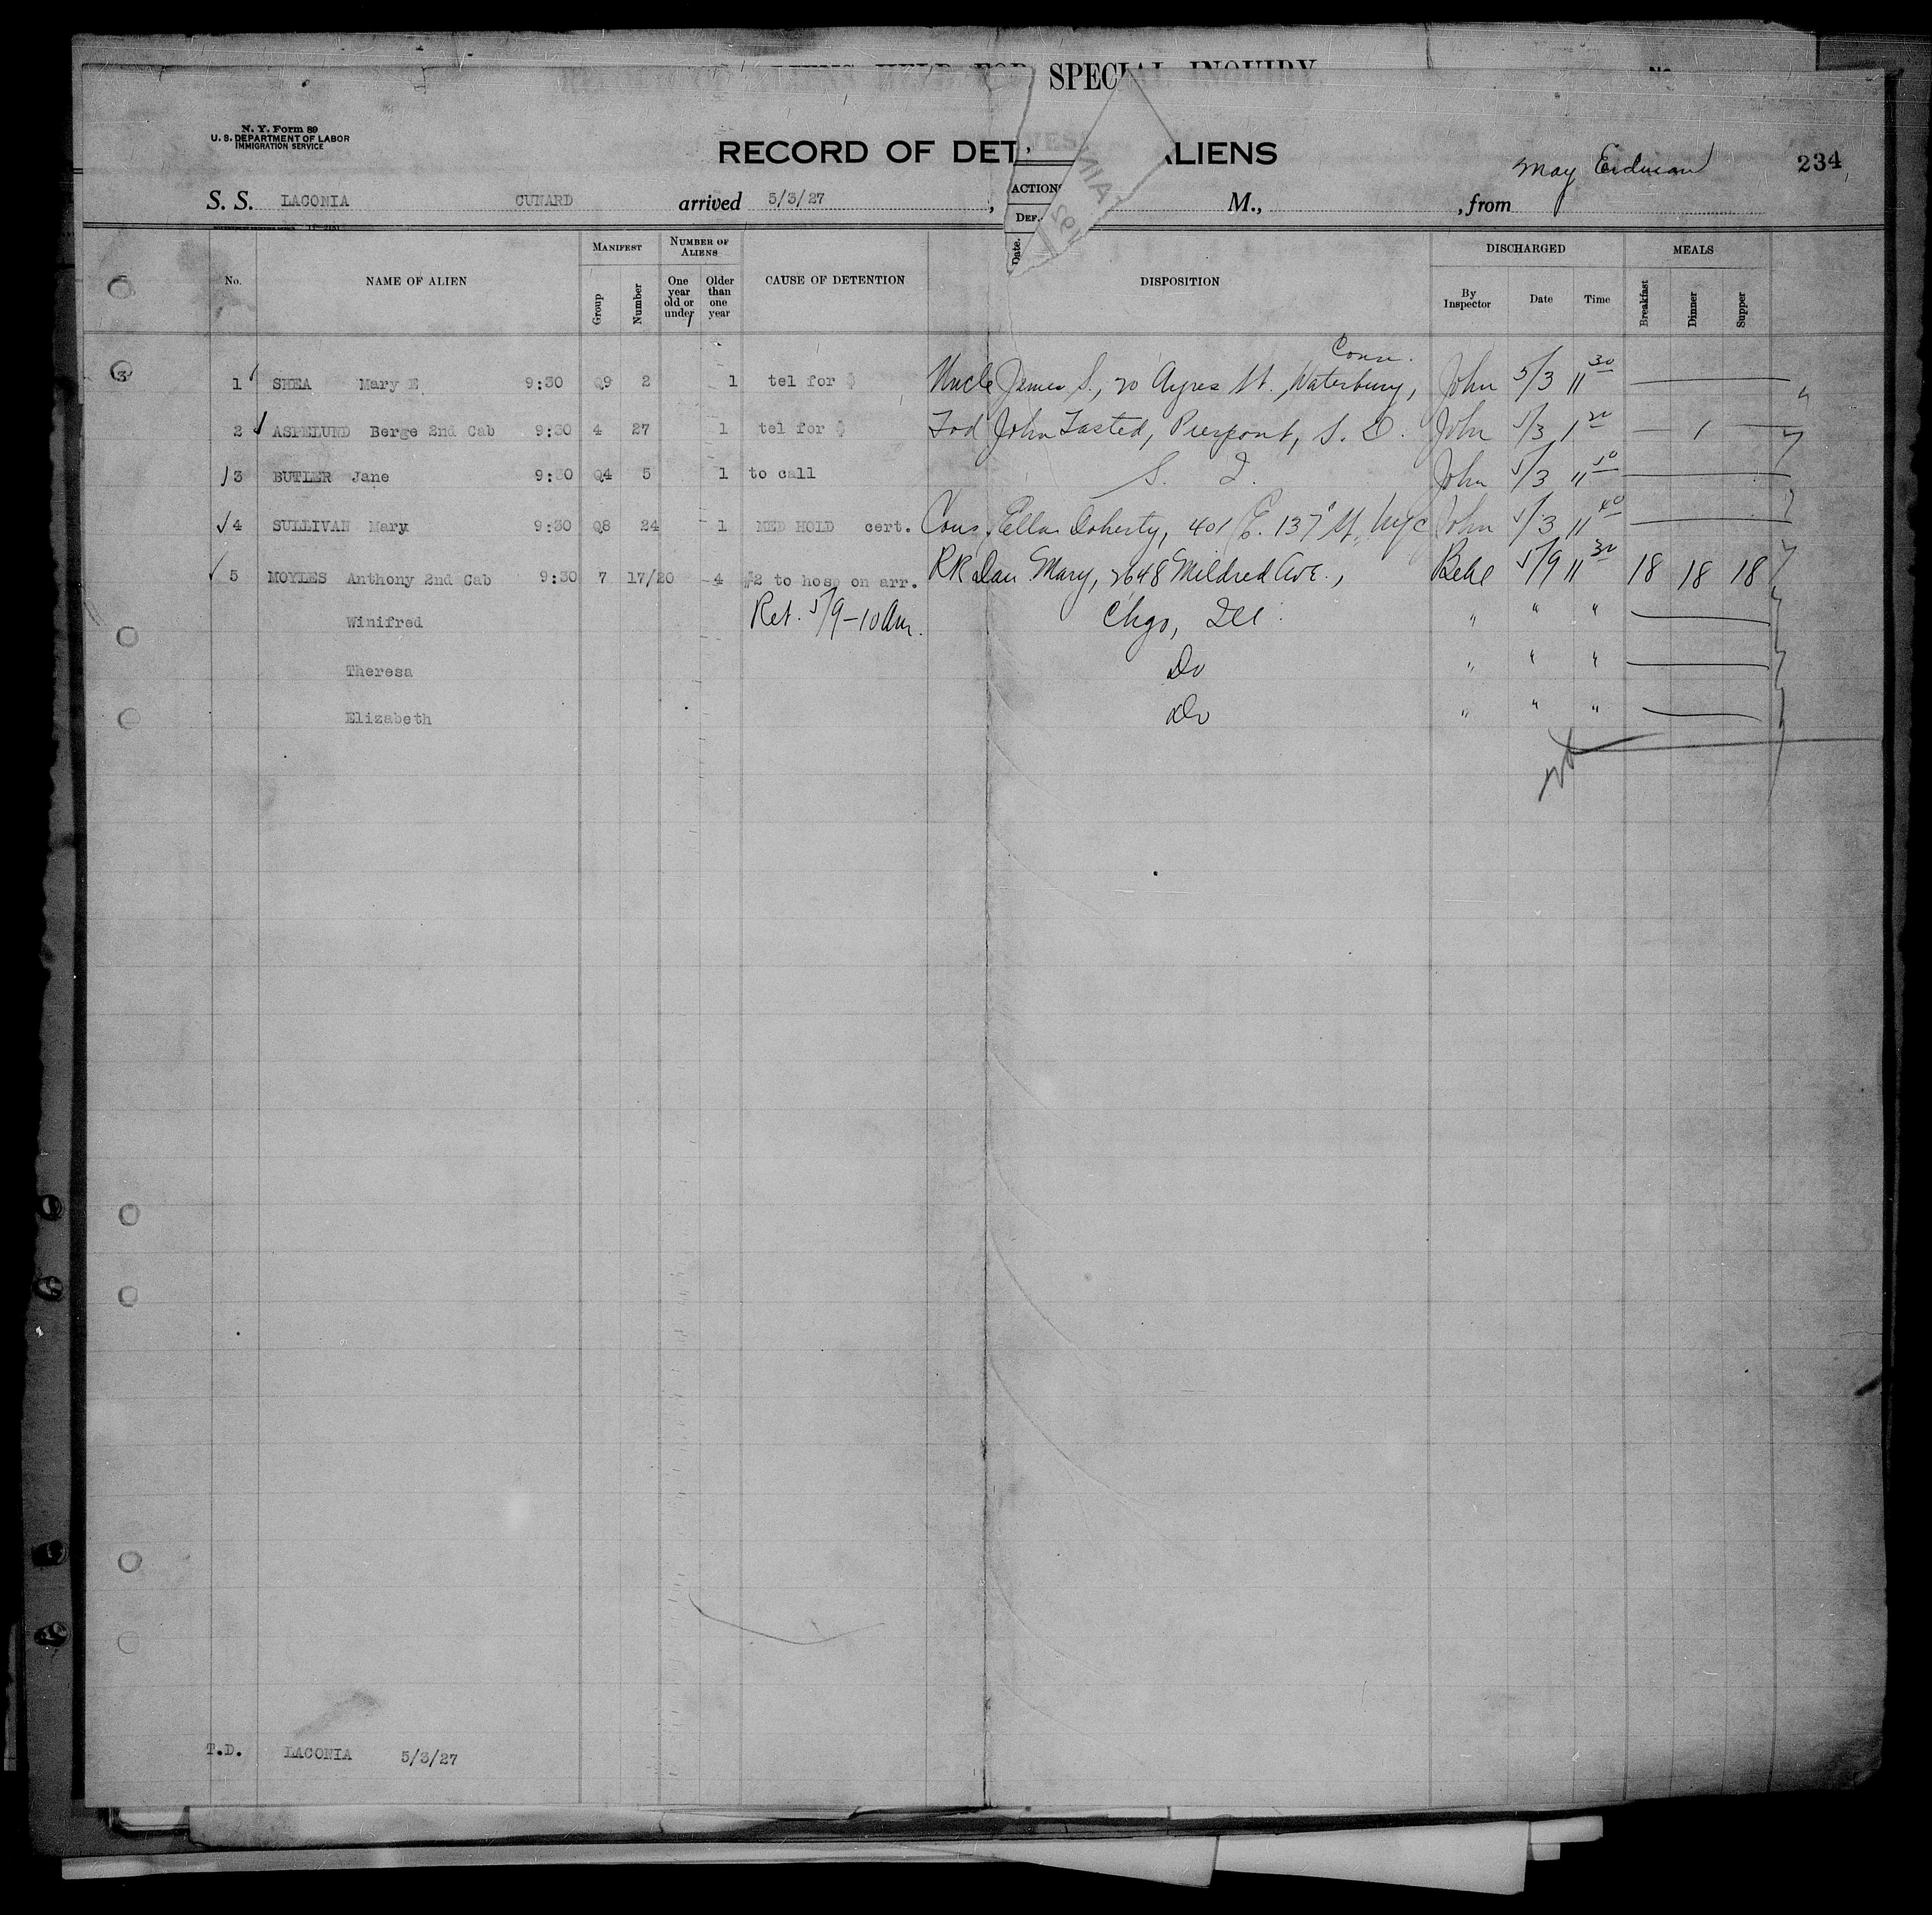 SPECIAL INQUIRY
N. Y. Form 89
U. S. DEPARTMENT OF LABOR
IMMIGRATION SERVICE
RECORD OF DET ALIENS
May Erdman 234
S. S. LACONIA CUNARD arrived 5/3/27 , M., , from
ACTIONS
DEF.
Date.
No. NAME OF ALIEN MANIFEST Group Number NUMBER OF ALIENS One year old or under Older than one year CAUSE OF DETENTION DISPOSITION DISCHARGED By Inspector Date Time MEALS Breakfast Dinner Supper
Conn.
1 SHEA Mary E 9:30 Q9 2 1 tel for $ Uncle James S., 20 Ayres St., Waterbury, John 5/3 11 30
2 ASPELUND Berge 2nd Cab 9:30 4 27 1 tel for $ John Tasted, Pierpont, S. D. John 5/3 1 20 1
3 BUTLER Jane 9:30 Q4 5 1 to call S. I. John 5/3 11 50
4 SULLIVAN Mary 9:30 Q8 24 1 MED HOLD cert. Cous Ella Doherty, 401 E. 137" St, NYC John 5/3 11 40
5 MOYLES Anthony 2nd Cab 9:30 7 17/20 4 #2 to hosp on arr. RR Dau Mary, 2648 Mildred Ave., 5/9 11 30 18 18 18
Winifred Ret. 5/9-10 Am. Chgo, Ill. " " "
Theresa Do " " "
Elizabeth Do " " "
T.D. LACONIA 5/3/27